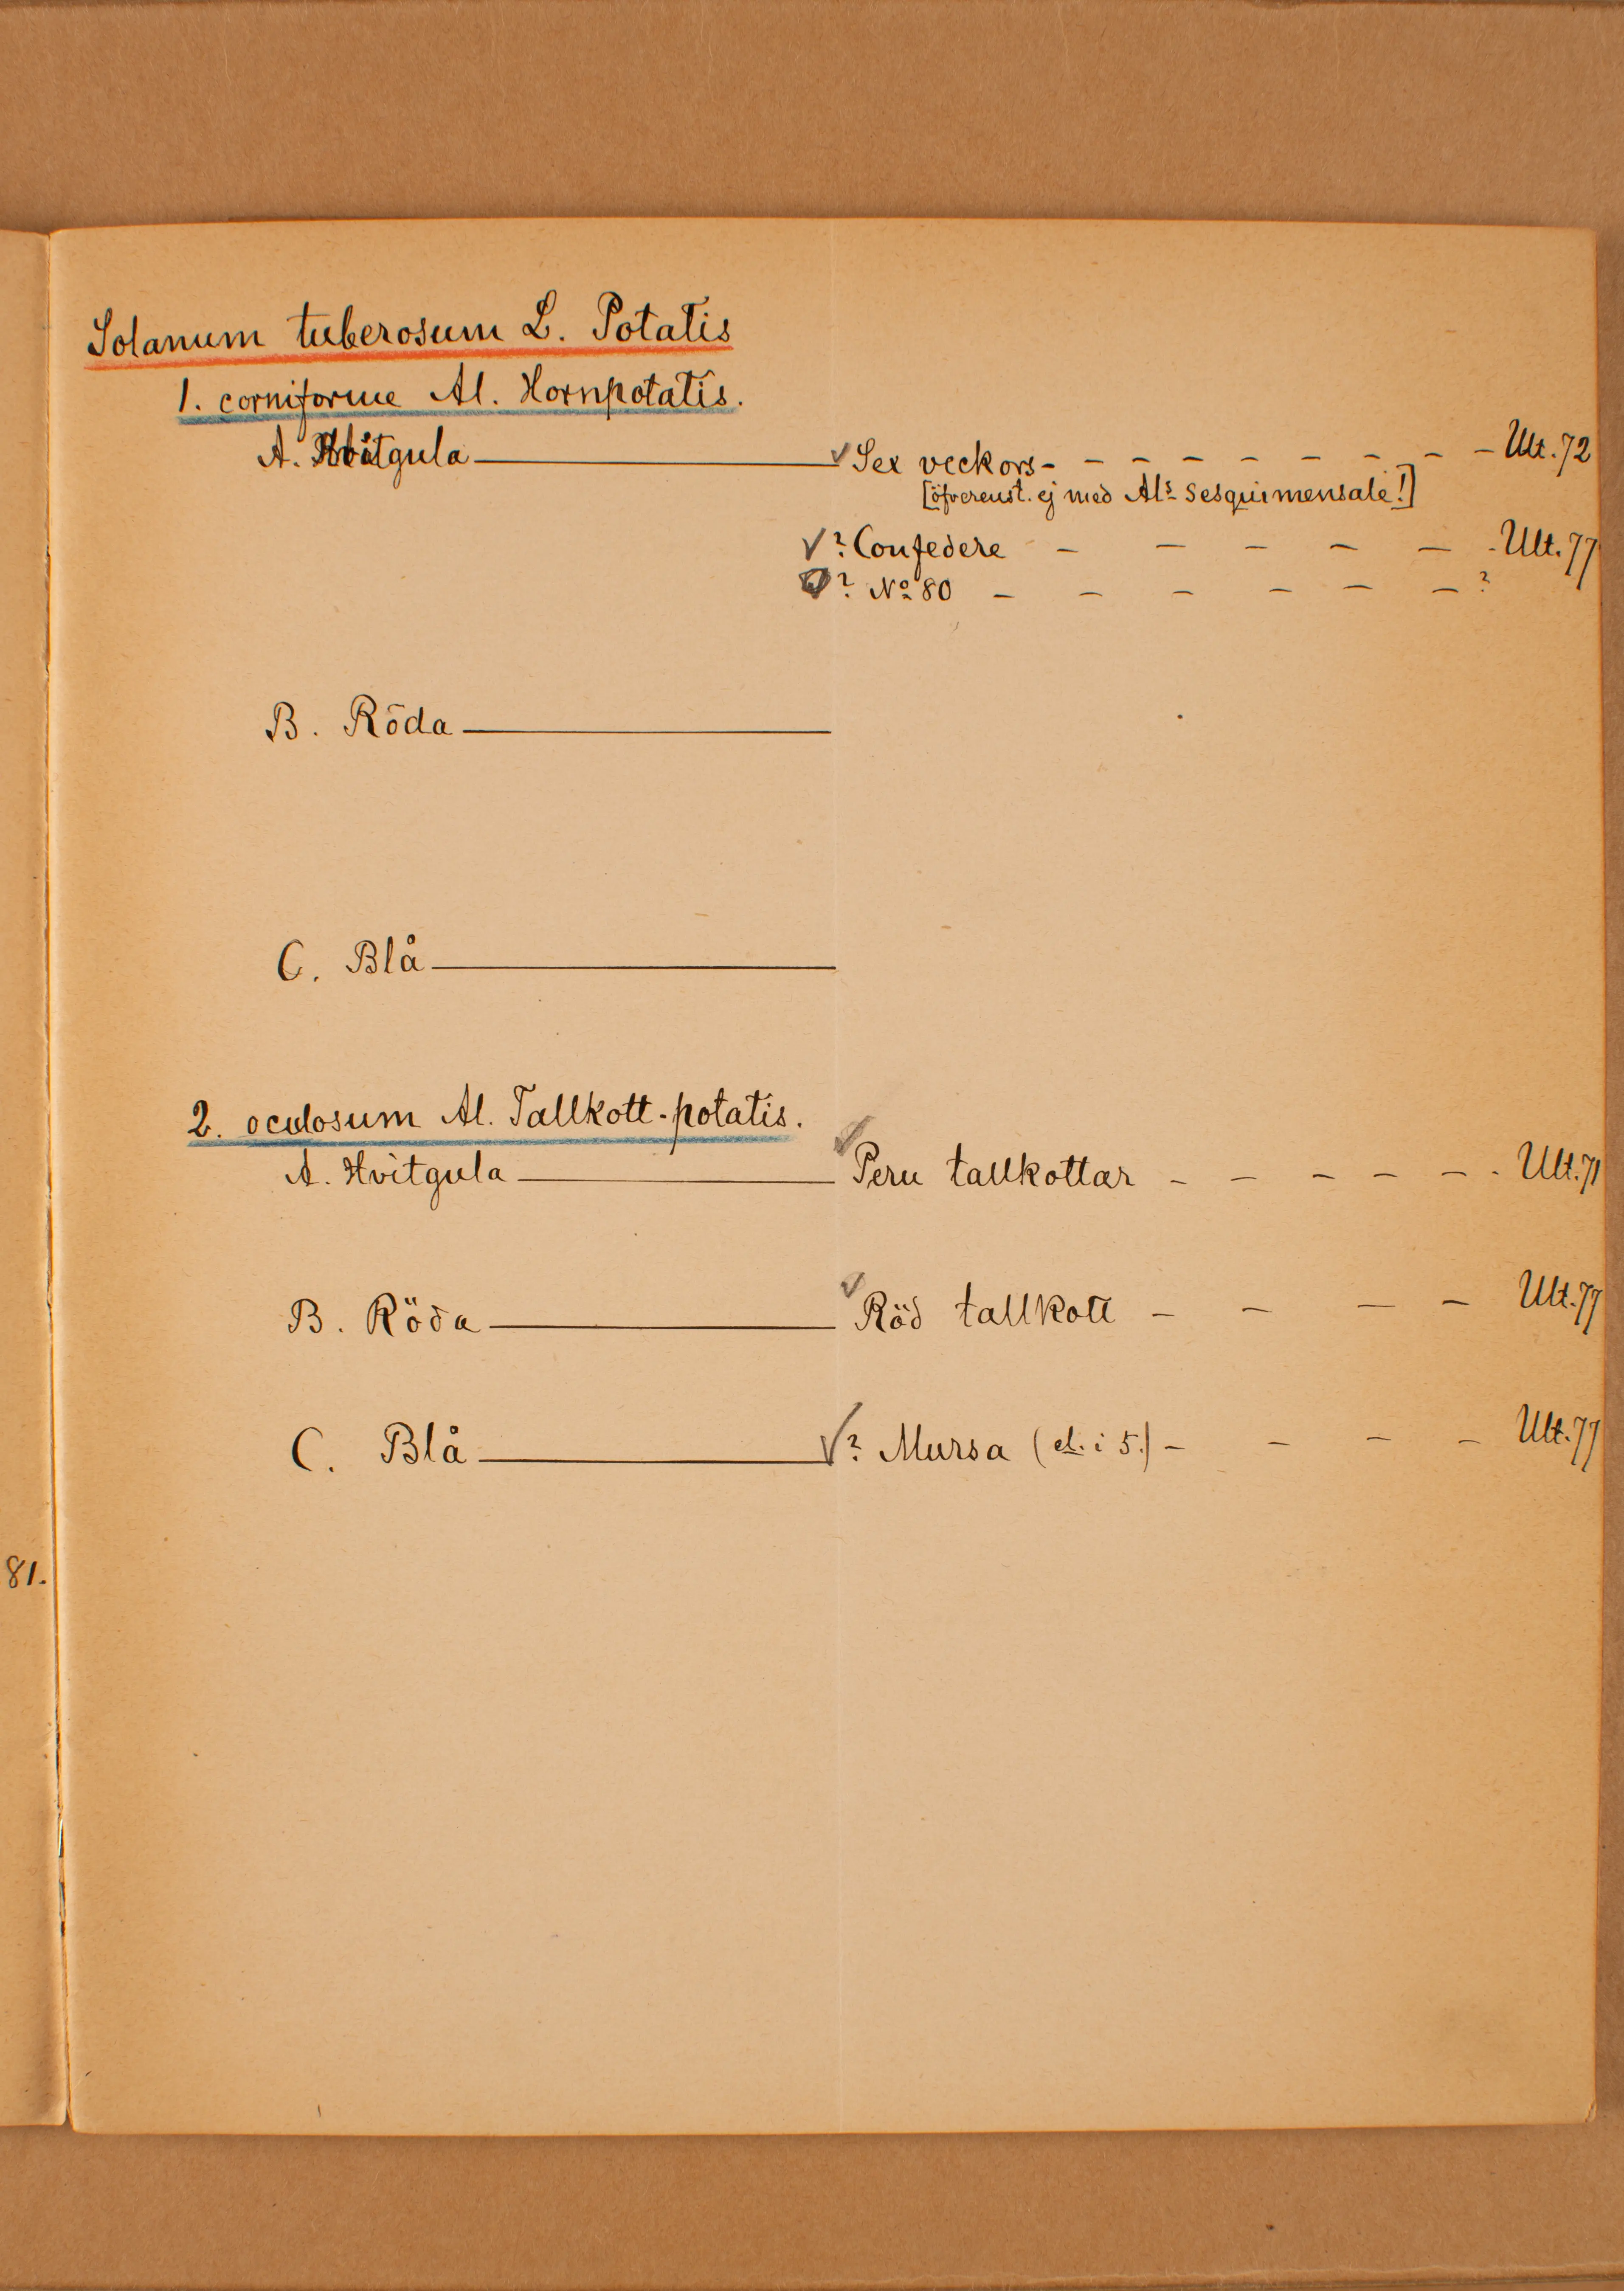 Solanum tuberosum L. Potatis
1. corniforme Al. Hornpotatis.
A. Hvitgula — ✓ Sex veckors - - - - - - - - - Ult. 72
[öfverenst. ej med Als Sesquimensale!]
✓? Confedere - - - - - - Ult. 77
? No 80 - - - - - - ?
B. Röda —
C. Blå —
2. oculosum Al. Tallkott-potatis.
A. Hvitgula — ✓ Peru tallkottar - - - - - - Ult. 71
B. Röda — ✓ Röd tallkott - - - - Ult. 77
C. Blå — ✓? Mursa (el. i 5.) - - - - Ult. 77
81.